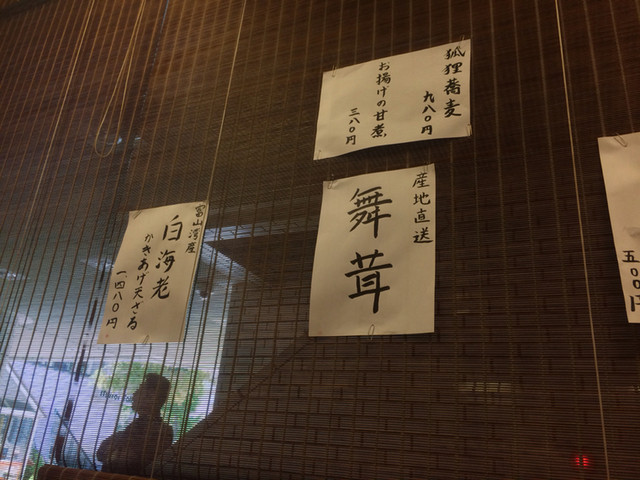 狐狸蕎麦
九八〇円
お揚げの甘煮
三八〇円
産地直送
舞茸
富山湾産
白海老
かきあげ天ざる
一四八〇円
五〇〇円